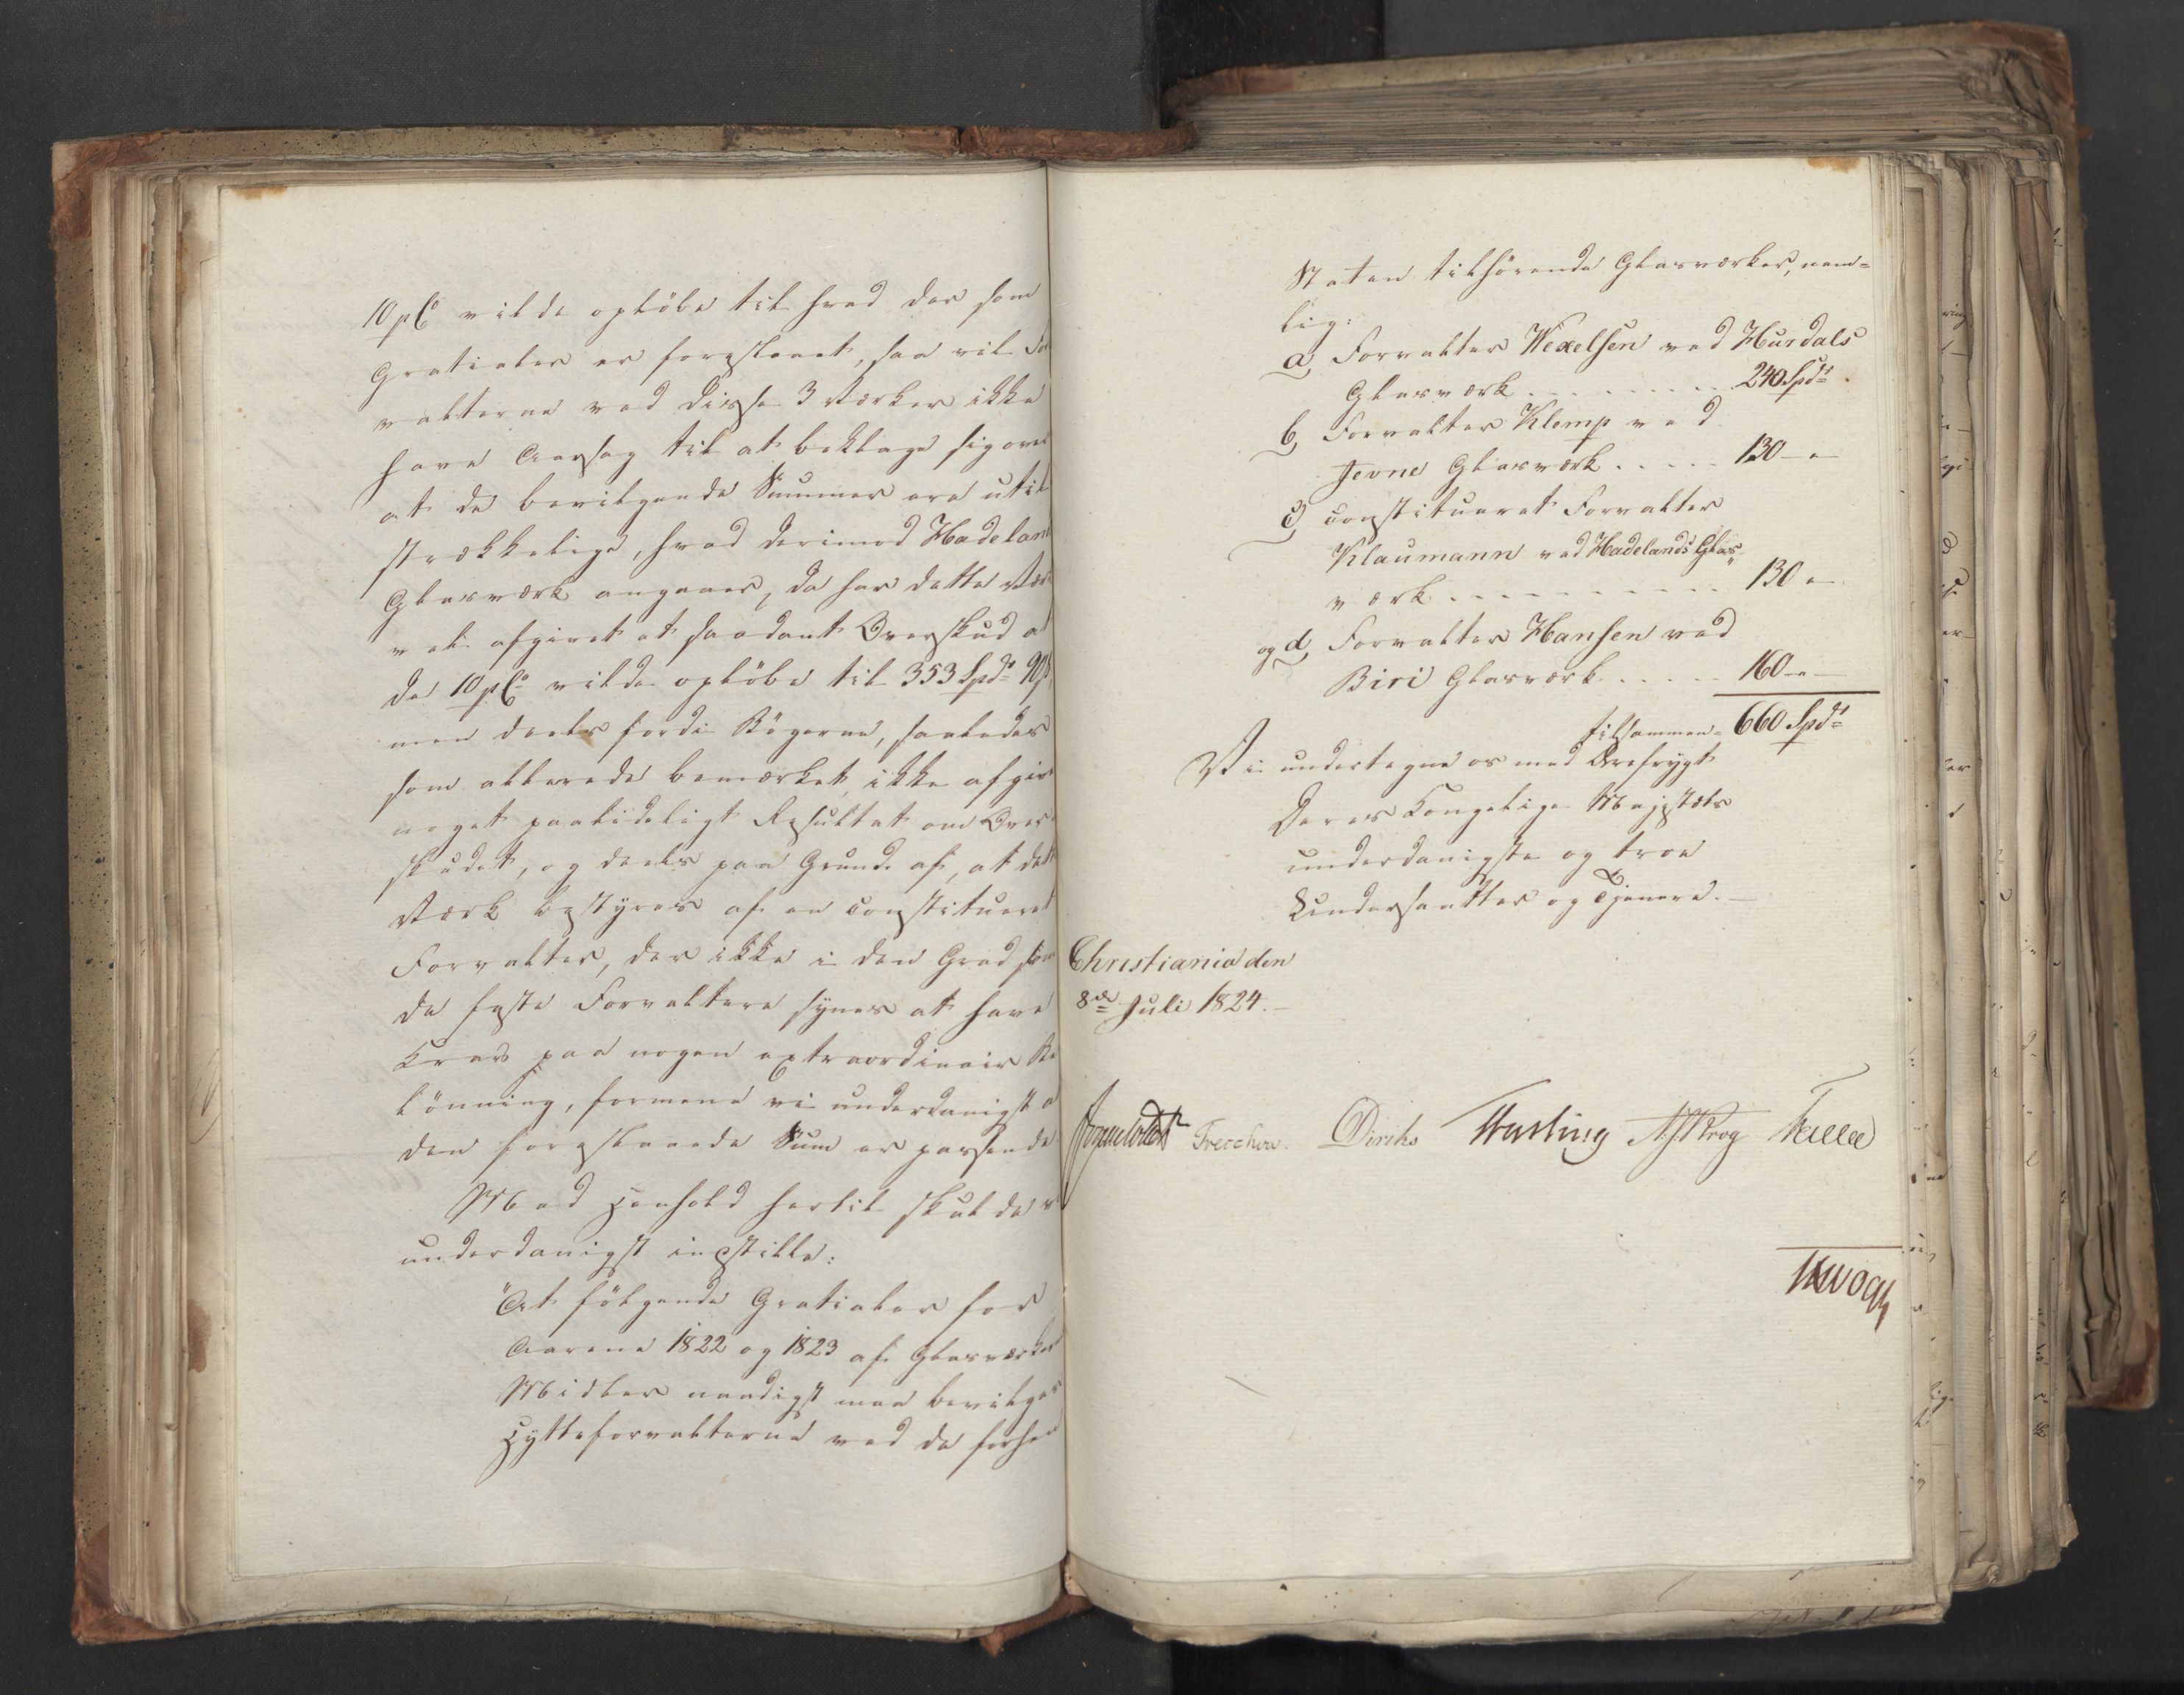 10 pCt vilde opløbe til hvad der som
Gratialer er foreslaaet, saa vil For
valterne ved disse 3 Værker ikke
have Aarsag til at beklage sig over
at de bevilgende Summer ere util
strækkelige, hvad derimod Hadeland
Glasværk angaaer, da har dette Værk
vel afgivet et saadant Overskud at
de 10 pCt vilde opløbe til 353 Spdr 90 s,
men deels fordi Bøgerne, saaledes
som allerede bemærket, ikke afgive
noget paalideligt Resultat om Over
skudet, og deels paa Grund af, at dette
Værk bestyres af en constitueret
Forvalter, der ikke i den Grad som
de faste Forvaltere synes at have
Krav paa nogen extraordinair Be
lønning, formene vi underdanigst at
den foreslaaede Sum er passende.
Med Henhold hertil skulde vi
underdanigst indstille:
"At følgende Gratialer for
Aarene 1822 og 1823 af Glasværkets
Midler naadigst maa bevilges
Hytteforvalterne ved de forhen
Staten tilhørende Glasværker, nem=
lig:
a, Forvalter Wexelsen ved Hurdals
Glasværk . . . . . . . . . 240 Spdr.
b, Forvalter Klemp ved
Jevne Glasværk . . . . . 130 — "
c, constitueret Forvalter
Klaumann ved Hadelands Glas=
værk . . . . . . . . . . 130 "
og d, Forvalter Hansen ved
Biri Glasværk . . . . . 160 — " —
tilsammen = 660 Spdr
Vi undertegne os med Ærefrygt
Deres Kongelige Majestæts
underdanigste og troe
Undersaatter og Tjenere. —
Christiania den
8de Juli 1824. —
Sommerhielm Treschow. Diriks Fasting A S Krog Kielle
Hvogt